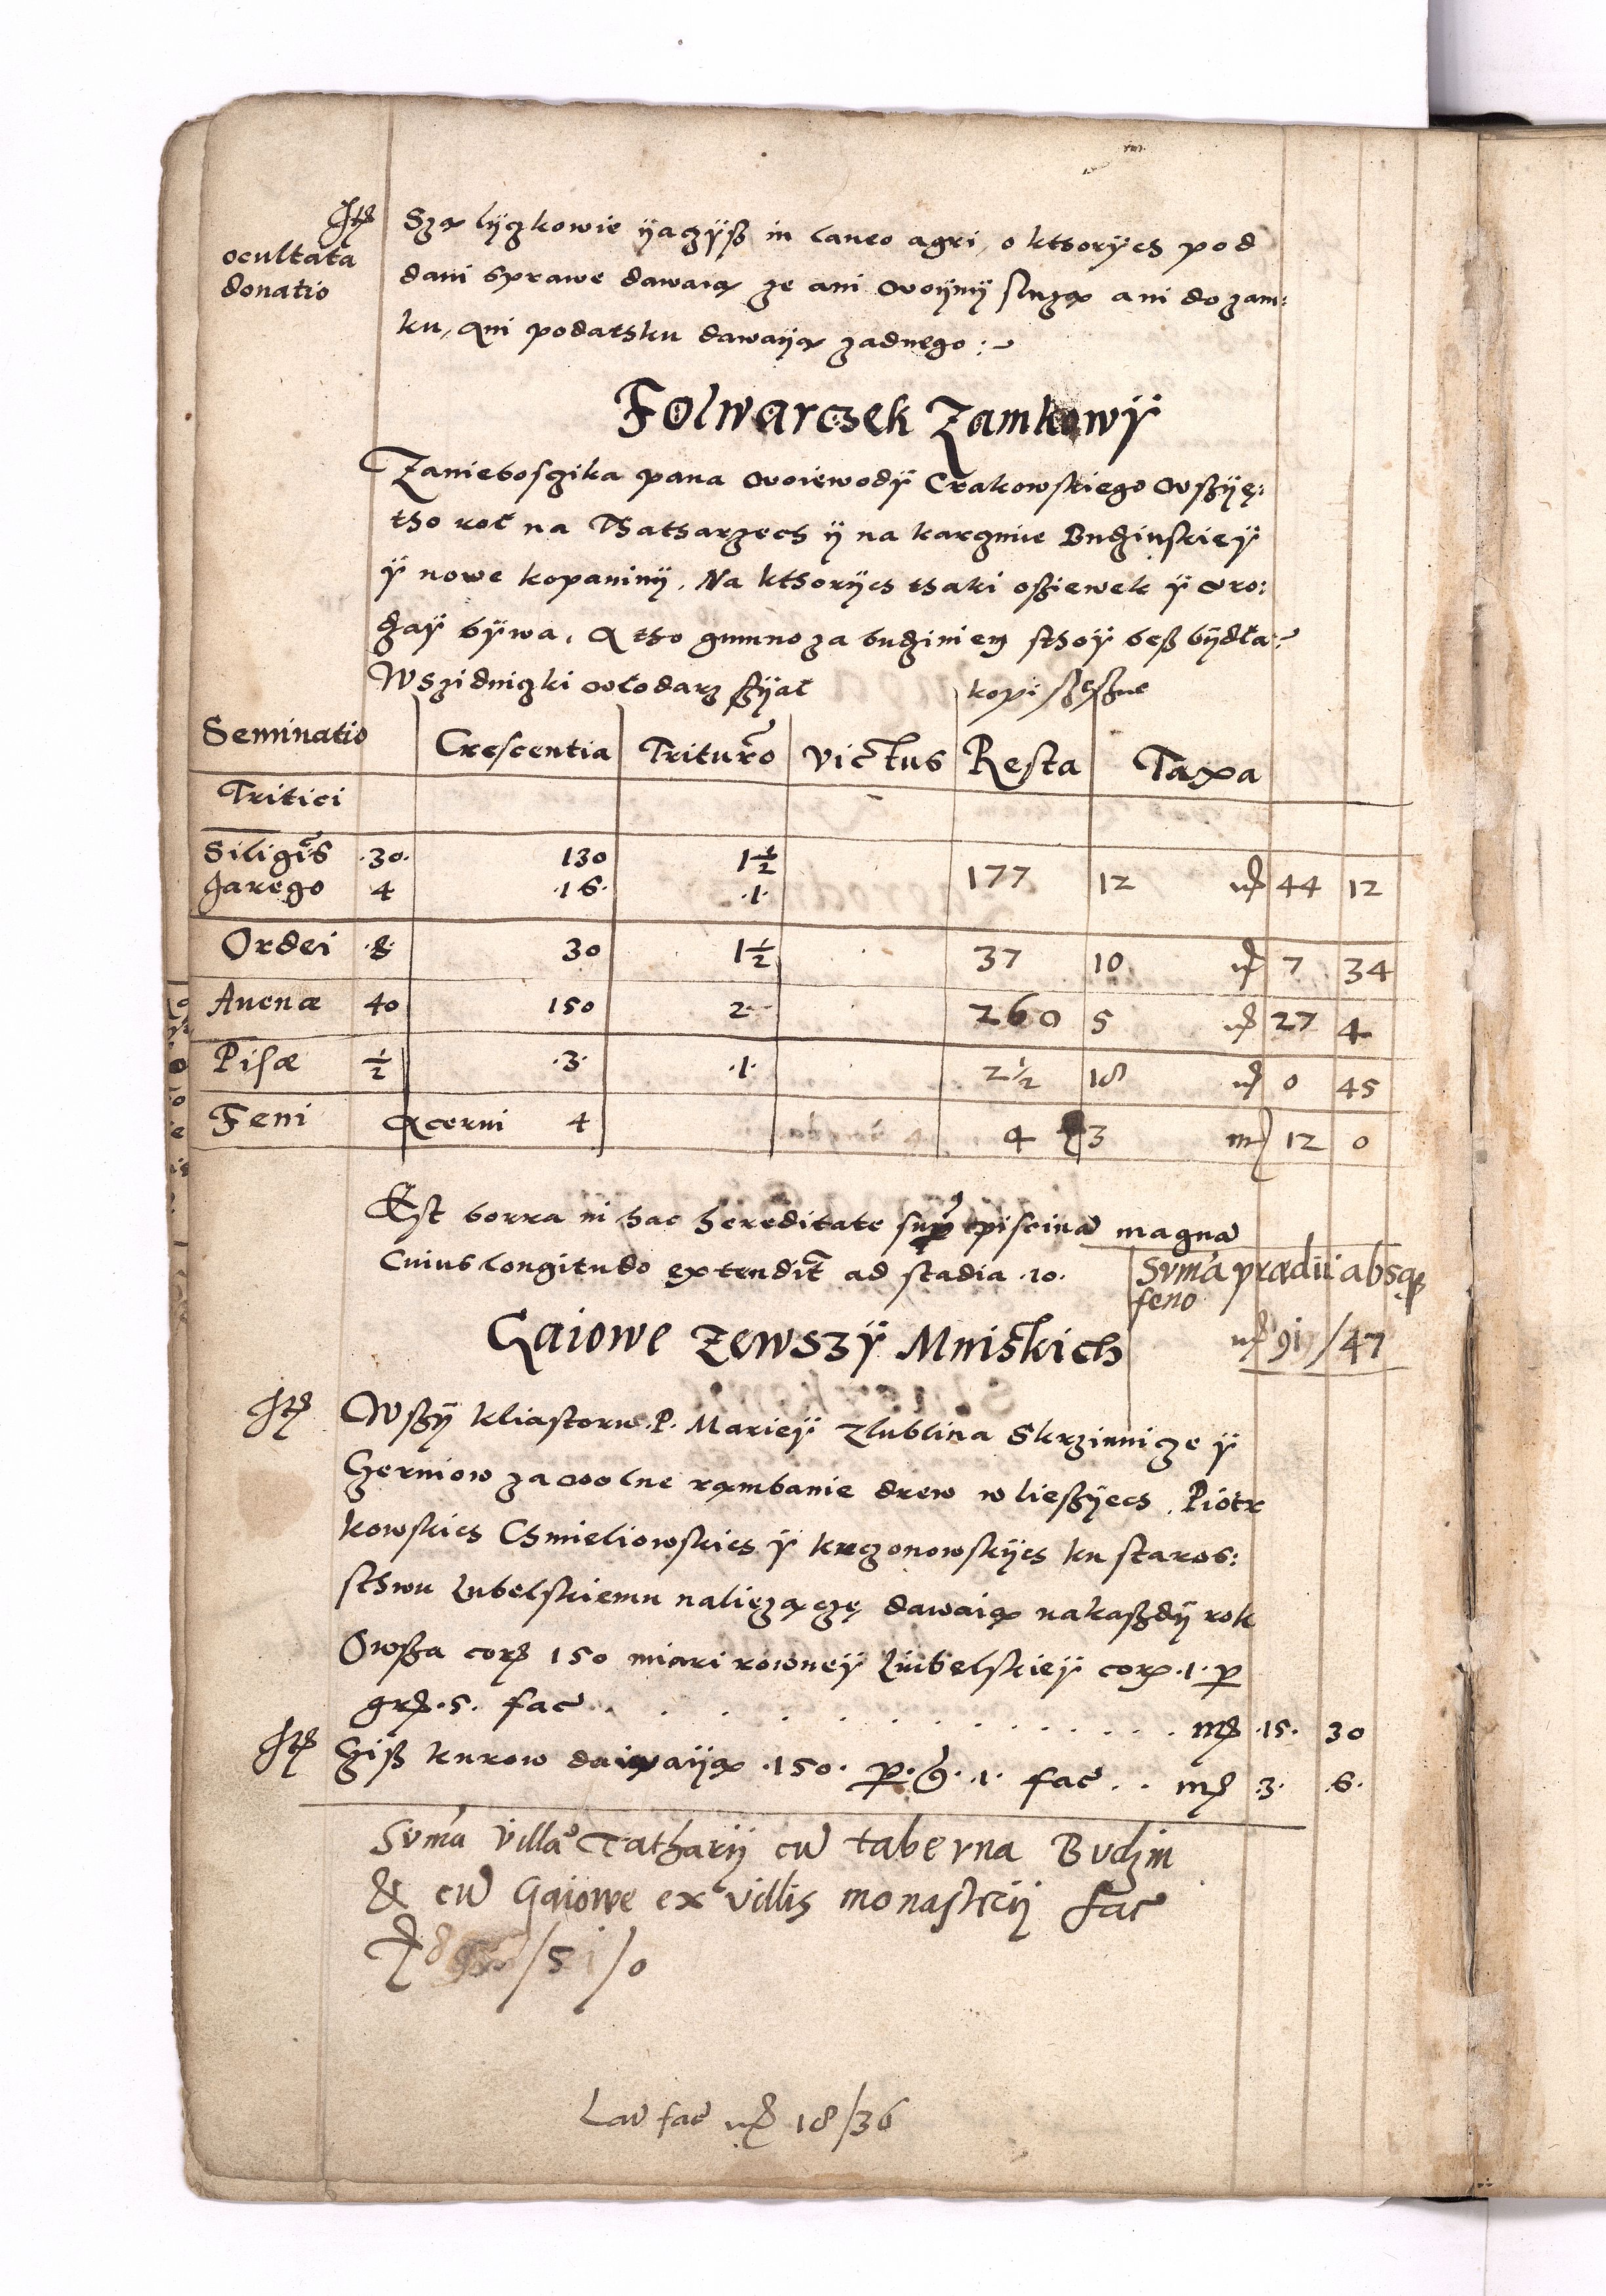 Itē
ocultata
donatio
Szą lyzkowie yaczysz in laneo agri, o ktorych pod
dani sprawe dawaią ze ani woyny służą ani do zam:
ku, Ani podatku dawayą zadnego :~
Folwarczek Zamkowy
Zanieboszika pana woiewody Crakowskiego wszyę:
tho rol na Thatharzech y na karczmie Budzinskiey
y nowe kopaniny. Na kthorych thaki osziewek y wro:
dzay bywa, A tho gumno za budziniem sthoy besz bydła
Wszidniczki włodarz szyał
kopi
Seminatio Crescentia Trituro Victus Resta Taxa
Tritici
Siliginis 30 130 1½ 177 12 mr 44 12
Jarego 4 16 1
Ordei 8 30 1½ 37 10 mr 7 34
Auenæ 40 150 2 260 5 mr 27 4
Pisæ ½ 3 1 2½ 18 mr 0 45
Feni Acerui 4 4 3 mr 12 0
Est borra in hac hereditate supr piscinā magnā
Cuius longitudo extendit ad stadia .10.
Suma prædii absq
feno
mr 91/47
Gaiowe Zewszy Mniskich
Itē Wszy kliastoru .P. Mariey Zlublina Skrzinnicze y
Czerniow za wolne rąmbanie drew w lieszyech. Piotr
kowskich Chmieliowskich y krczonowskych ku staros:
sthwu Lubelskiemu nalięzączę dawaią nakaszdy rok
Owsza cor 150 miari rowney Lubelskiey cor .1. p
gr .5. fac . . . . . . . . . . . . . mr .15. 30
Itē Czisz kurow dawayą .150. p. g. .1. fac . . mr 3. .6.
Suma villæ Tathary cū taberna Budzin
& cū Gaiowe ex villis monastery fac
/51/0
Lat fac mr 18/36